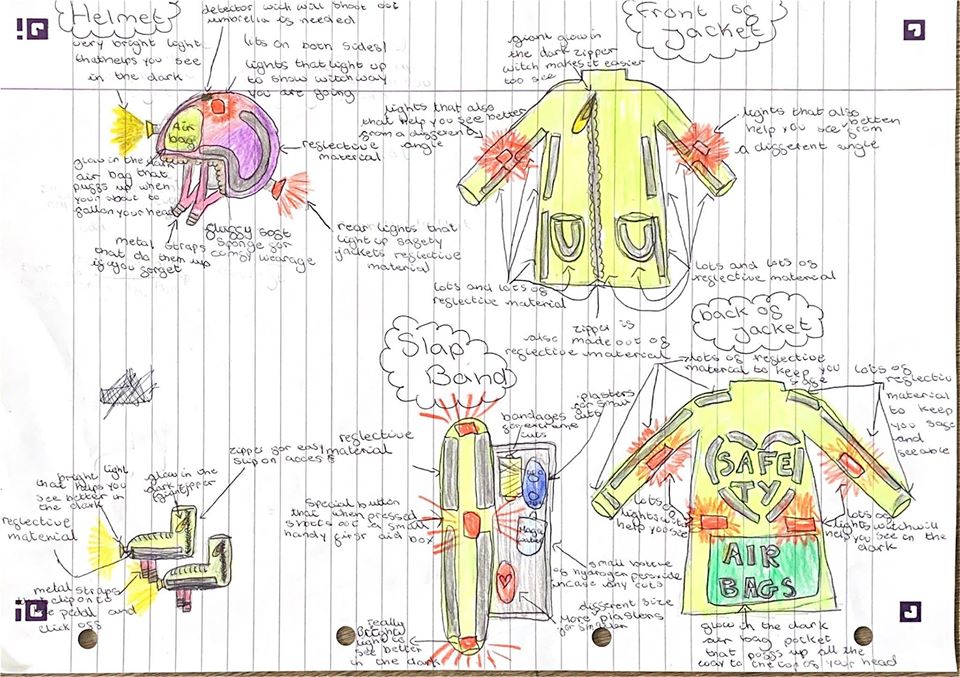 Helmet
detector wich will shoot out
umbrella is needed
very bright light
that helps you see
in the dark
lots on both sides!
lights that light up
to show witch way
you are going
Air
bag
reflective
material
glow in the dark
air bag that
puffs up when
your about to
fall on your head
metal straps
that do them up
if you forget
fluffy soft
sponge for
comfy wearage
rear lights that
light up safety
jackets reflective
material
Front of
jacket
giant glow in
the dark zipper
witch makes it easier
too see
lights that also
that help you see better
from a different
angle
lights that also
help you see better
from
a different angle
lots and lots of
reflective material
lots and lots of
reflective material
zipper is
also made out of
reflective material
back of
jacket
lots of reflective
material to keep you
safe
lots of
reflective
material
to keep
you safe
and
seeable
SAFE
TY
AIR
BAGS
lots of
lights witch
help you see
lots of
lights witch will
help you see in the
dark
glow in the dark
air bag pocket
that poffs up all the
way to the top of your head
Slap
Band
reflective
material
Special button
that when pressed
shoots out a small
handy first aid box
bandages
for extreme
cuts
plasters
for small
cuts
small bottle
of hydrogen peroxide
incase any cuts
different size
More plasters
for
really
bright
light to
see better
in the dark
bright light
that helps you
see better in the
dark
glow in the
dark zipper
zipper for easy
slip on access
reflective
material
metal straps
that clip onto
the pedal and
click off